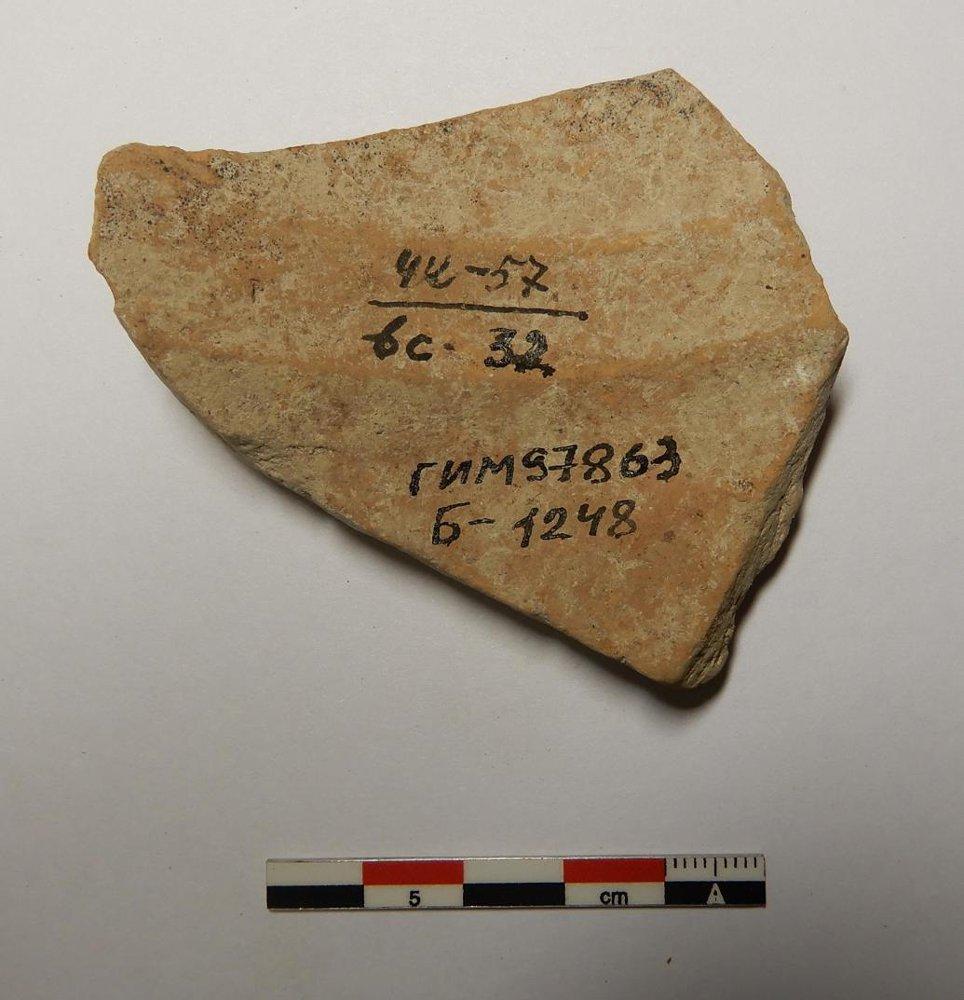 чк-57
вс-32
ГИМ97863
Б-1248
5 cm